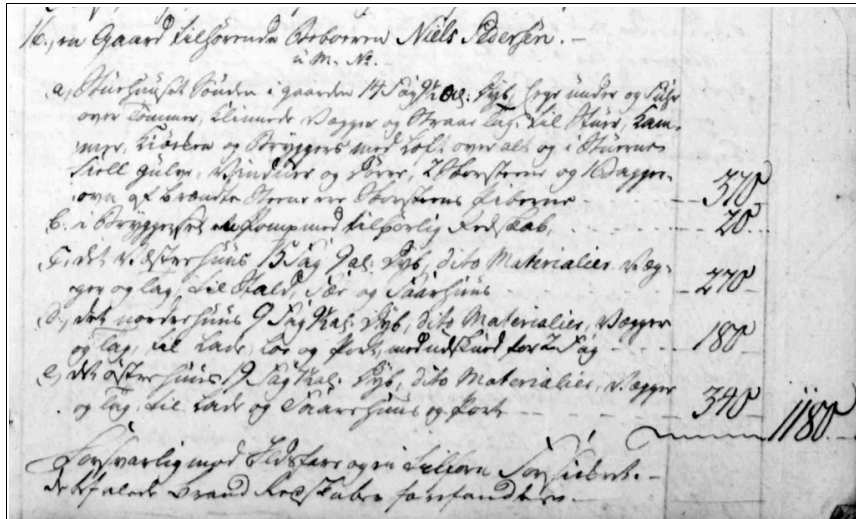 16., en Gaard tilhørende Beboeren Niels Pedersen. –
u M. No. –
a, Stuehuuset Sønden i gaarden 17 Fag 9 al: dyb, Eege under og Führ
over Tømmer, Kliinede Vægger og Straae Tag, til Stuer, Kam-
mer, Kiøcken og Bryggers med Loft over alt og i Stuerne
Fiell Gulve, Vinduer og Dørre, 2 Skorsteene og
ovn af brændte Steene Skorsteens Piberne – 370
b. i Bryggerset en Pomp med tilhørlig Redskab, 20.
c, det Vester huus 15 Fag 9 al: dyb, dito Materialier Væg-
ger og Tag, til Stald, og Faarhuus 270
d., det norder huus 9 Fag al: dyb, dito Materialier, Vægger
og Tag, til Lade, Loe og Port, med udskud for 2 Fag 180
e, det øster huus 19 Fag al: dyb, dito Materialier, Vægger
og Tag, til Lade og huus og Port 340 1180
Forsvarlig mod Ildsfare og en Forsiclert. –
de befalede Brand Redskaber forefandtes. –